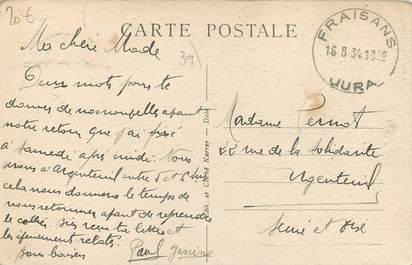 20 6
CARTE POSTALE
39
FRAISANS
16.8.34
JURA
Ma chère Made
Deux mots pour te
donner de nos nouvelles avant
notre retour que j'ai fixé
à Samedi après midi. Nous
serons à Argenteuil entre 5 et 6
cela nous donnera le temps de
nous retourner avant de reprendre
le collier. reçu ta lettre et
les évènements relatés.
bons baisers Paul Janine
Madame Pernot
22 rue de la solidarité
Argenteuil
Seine et Oise